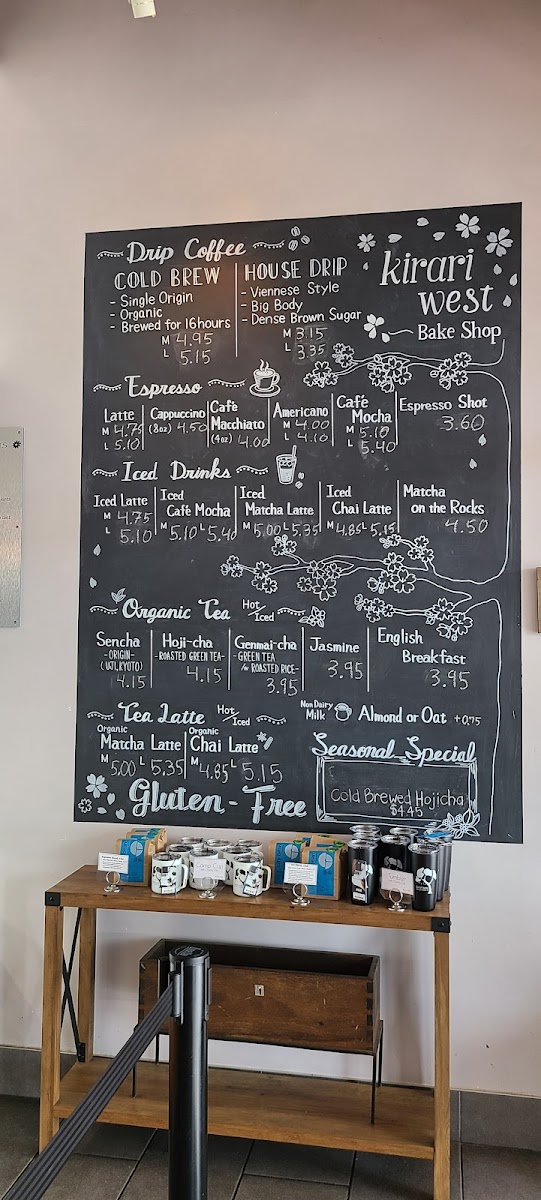 Drip Coffee
COLD BREW
- Single Origin
- Organic
- Brewed for 16 hours
M 4.95
L 5.15
HOUSE DRIP
- Viennese Style
- Big Body
- Dense Brown Sugar
M 3.15
L 3.35
kirari
west
Bake Shop
Espresso
Latte
M 4.75
L 5.10
Cappuccino
(8oz) 4.50
Café
Macchiato
(4oz) 4.00
Americano
M 4.00
L 4.10
Café
Mocha
M 5.10
L 5.40
Espresso Shot
3.60
Iced Drinks
Iced Latte
M 4.75
L 5.10
Iced
Café Mocha
M 5.10 L 5.40
Iced
Matcha Latte
M 5.00 L 5.35
Iced
Chai Latte
M 4.85 L 5.15
Matcha
on the Rocks
4.50
Organic Tea Hot/Iced
Sencha
- ORIGIN -
(UJI, KYOTO)
4.15
Hoji-cha
- ROASTED GREEN TEA -
4.15
Genmai-cha
- GREEN TEA
w/ ROASTED RICE -
3.95
Jasmine
3.95
English
Breakfast
3.95
Tea Latte Hot/Iced
Organic
Matcha Latte
M 5.00 L 5.35
Organic
Chai Latte
M 4.85 L 5.15
Non Dairy
Milk
Almond or Oat +0.75
Gluten-Free
Seasonal Special
Cold Brewed Hojicha
$4.45
Camp Cup
1